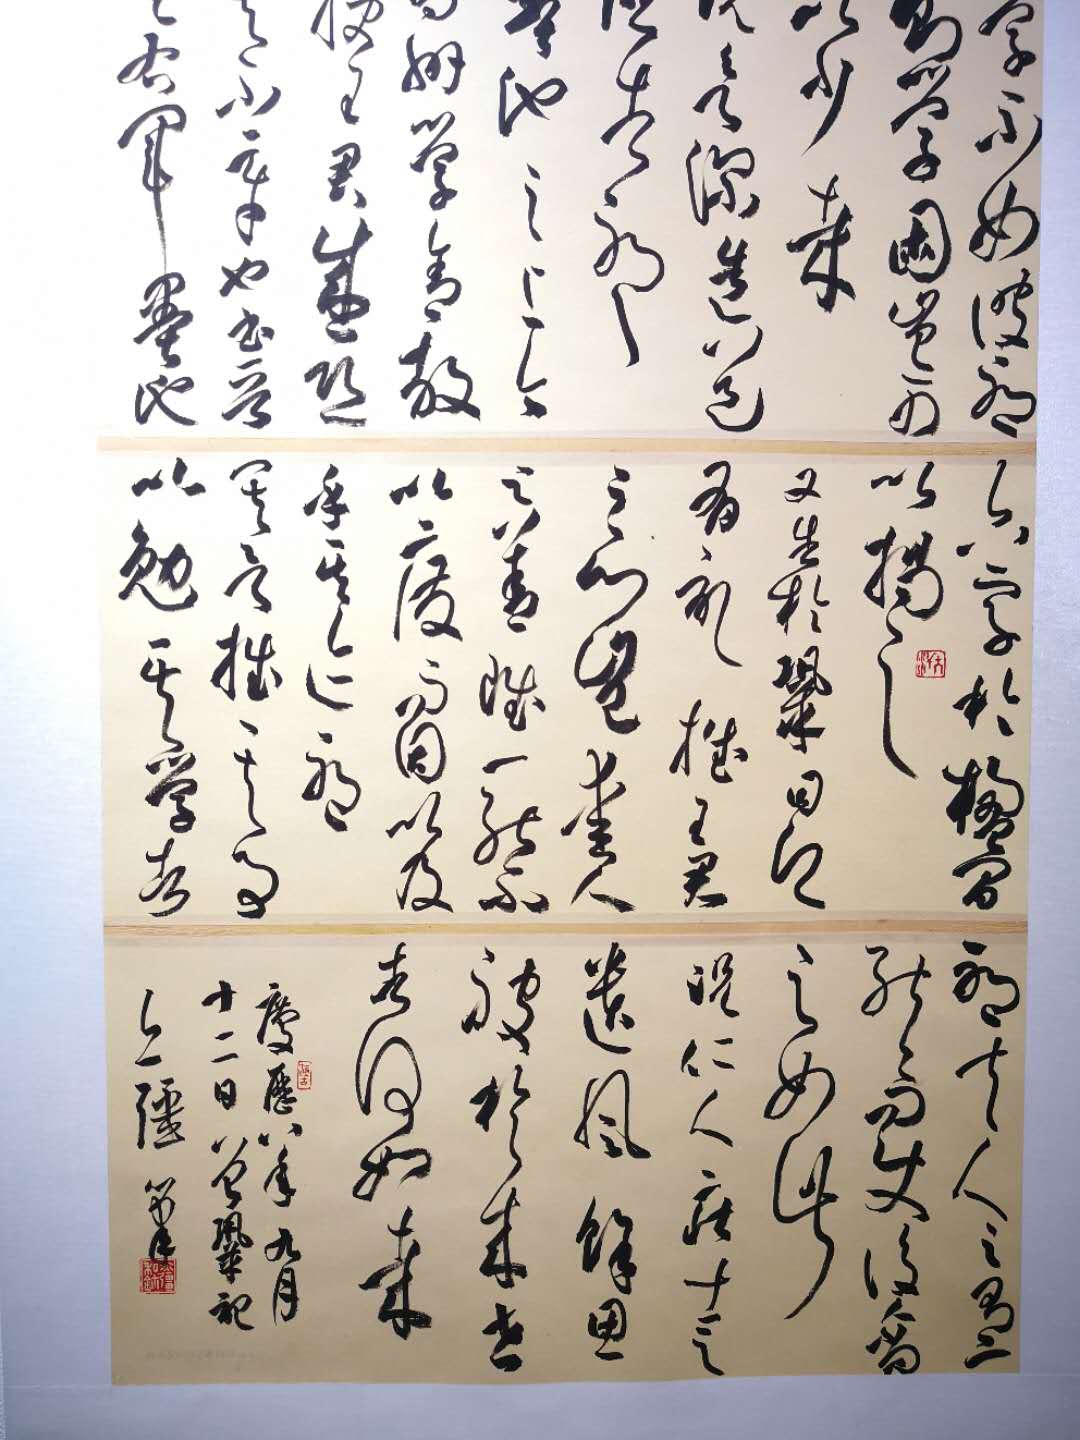 学不如彼邪
则学固岂可
以少哉
况欲深造道
德者邪
池之上今
为州学舍教
授王君盛恐
其不章也书晋
王右军墨池
之六字於楹间
以揭之
又告於鞏曰愿
有記推王君
之心岂爱人
之善雖一能不
以废而因以及
乎其迹邪
其欲推其事
以勉其学者
邪夫人之有一
能而使後人尚
之如此
况仁人庄士之
遗风馀思
被於来世
者何如哉
慶歷八年九月
十二日曾鞏記